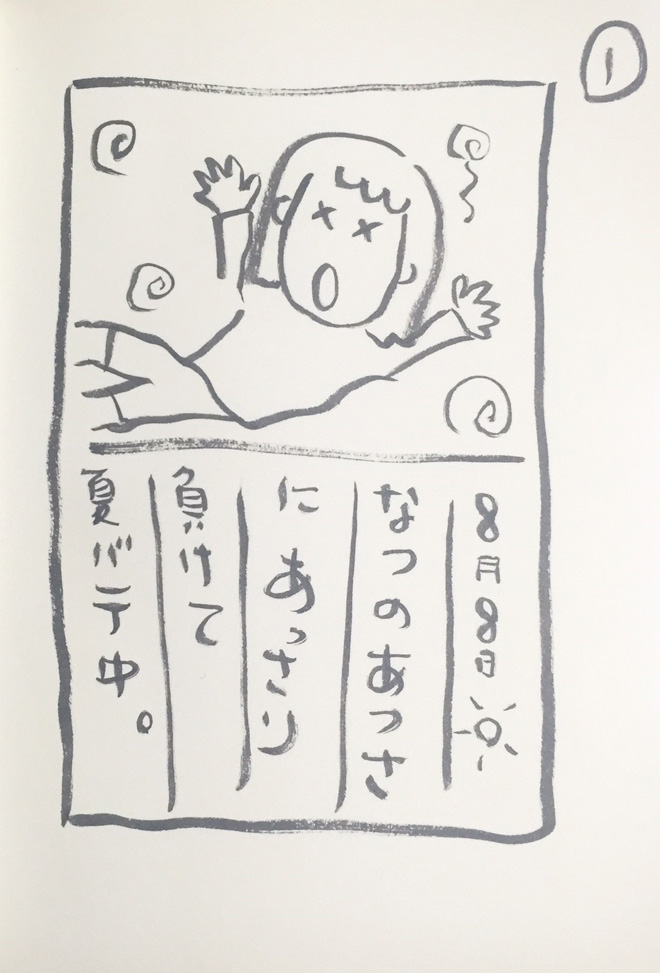 ①
8月8日
なつのあつさ
に あっさり
負けて
夏バテ中。